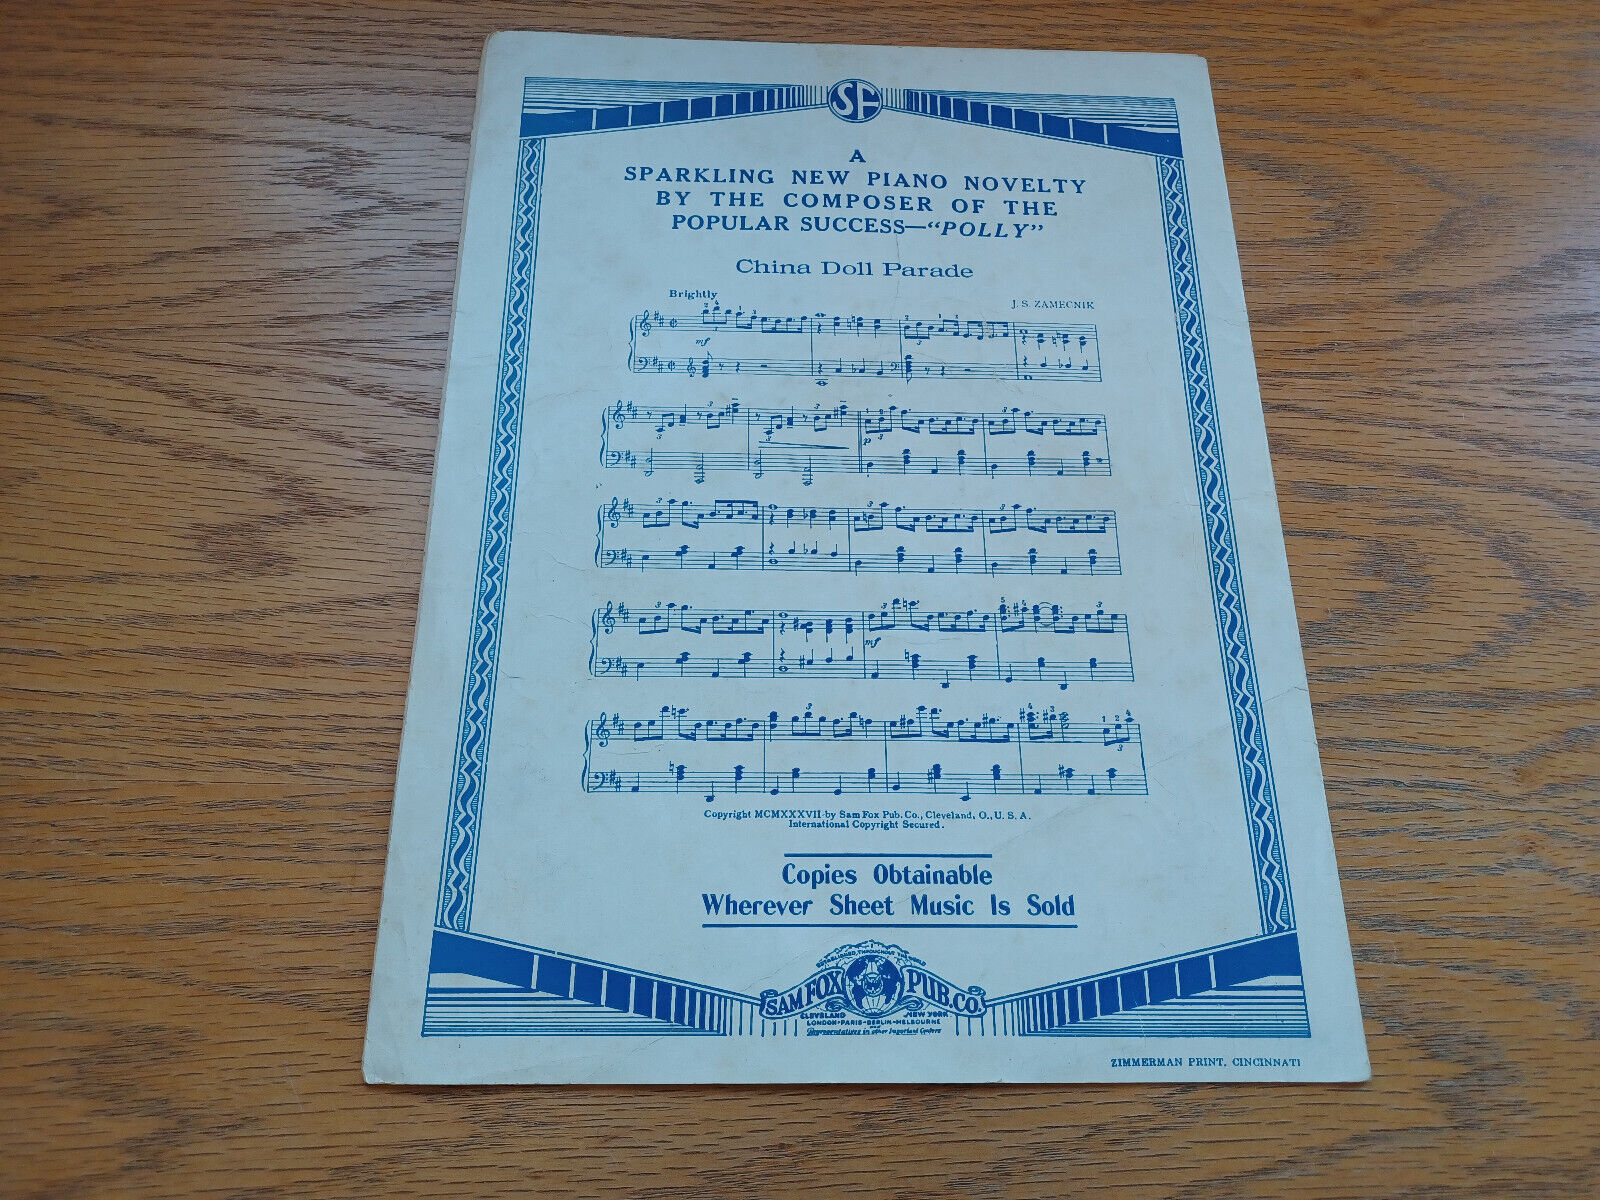 SF
A
SPARKLING NEW PIANO NOVELTY
BY THE COMPOSER OF THE
POPULAR SUCCESS—"POLLY"
China Doll Parade
Brightly
J. S. ZAMECNIK
mf
p
mf
Copyright MCMXXXVII by Sam Fox Pub. Co., Cleveland, O., U. S. A.
International Copyright Secured.
Copies Obtainable
Wherever Sheet Music Is Sold
THROUGHOUT THE WORLD
SAM FOX PUB. CO.
CLEVELAND NEW YORK
LONDON-PARIS-BERLIN-MELBOURNE
Representatives in other Important Centers
ZIMMERMAN PRINT. CINCINNATI